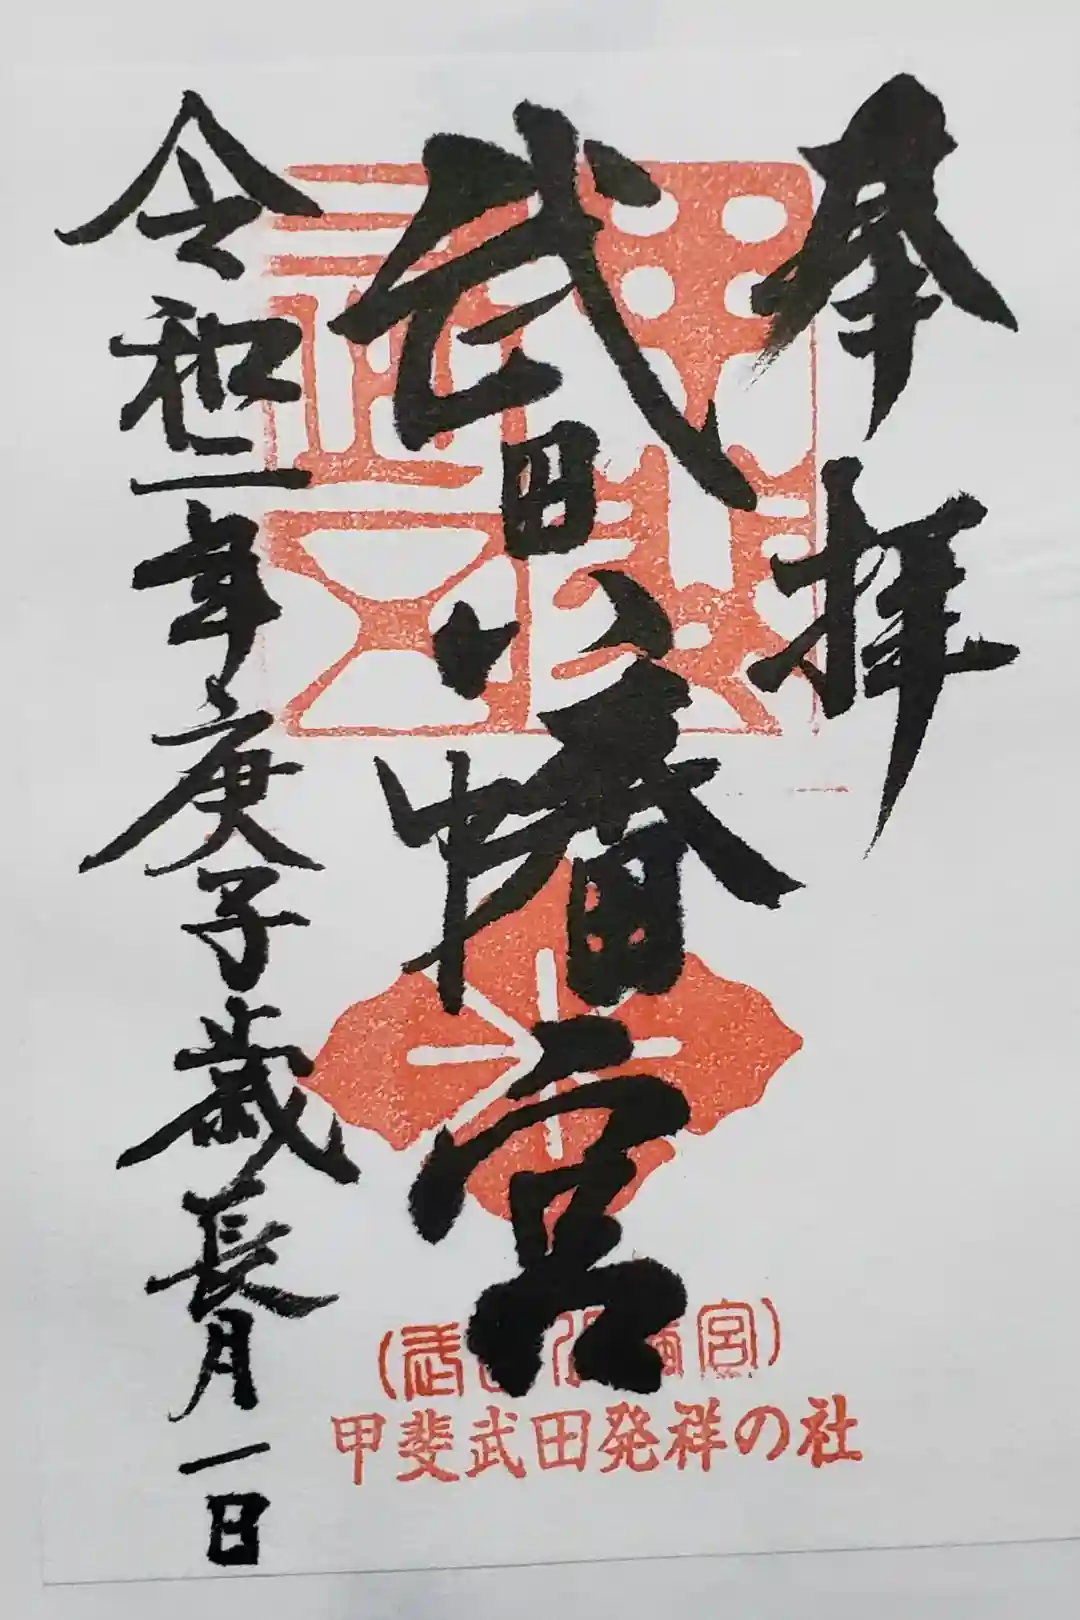 奉拝
武田八幡宮
令和二年庚子歳長月一日
(武田八幡宮)
甲斐武田発祥の社